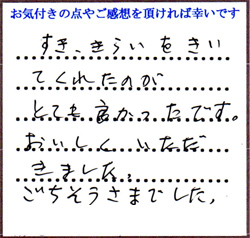 お気付きの点やご感想を頂ければ幸いです
すき、きらいをきい
てくれたのが
とても良かったです。
おいしくいただ
きました。
ごちそうさまでした。